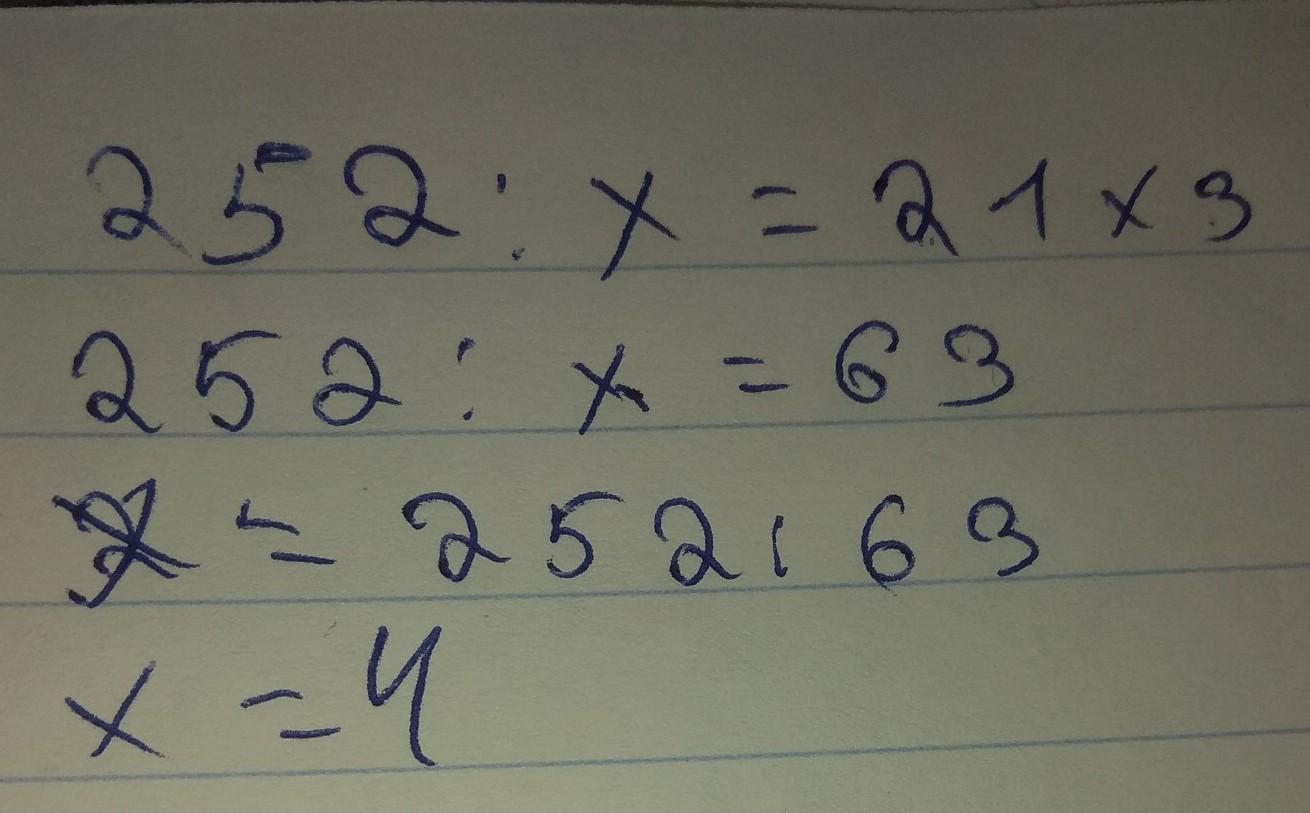 252 : x = 21 x 3
252 : x = 63
x = 252 : 63
x = 4